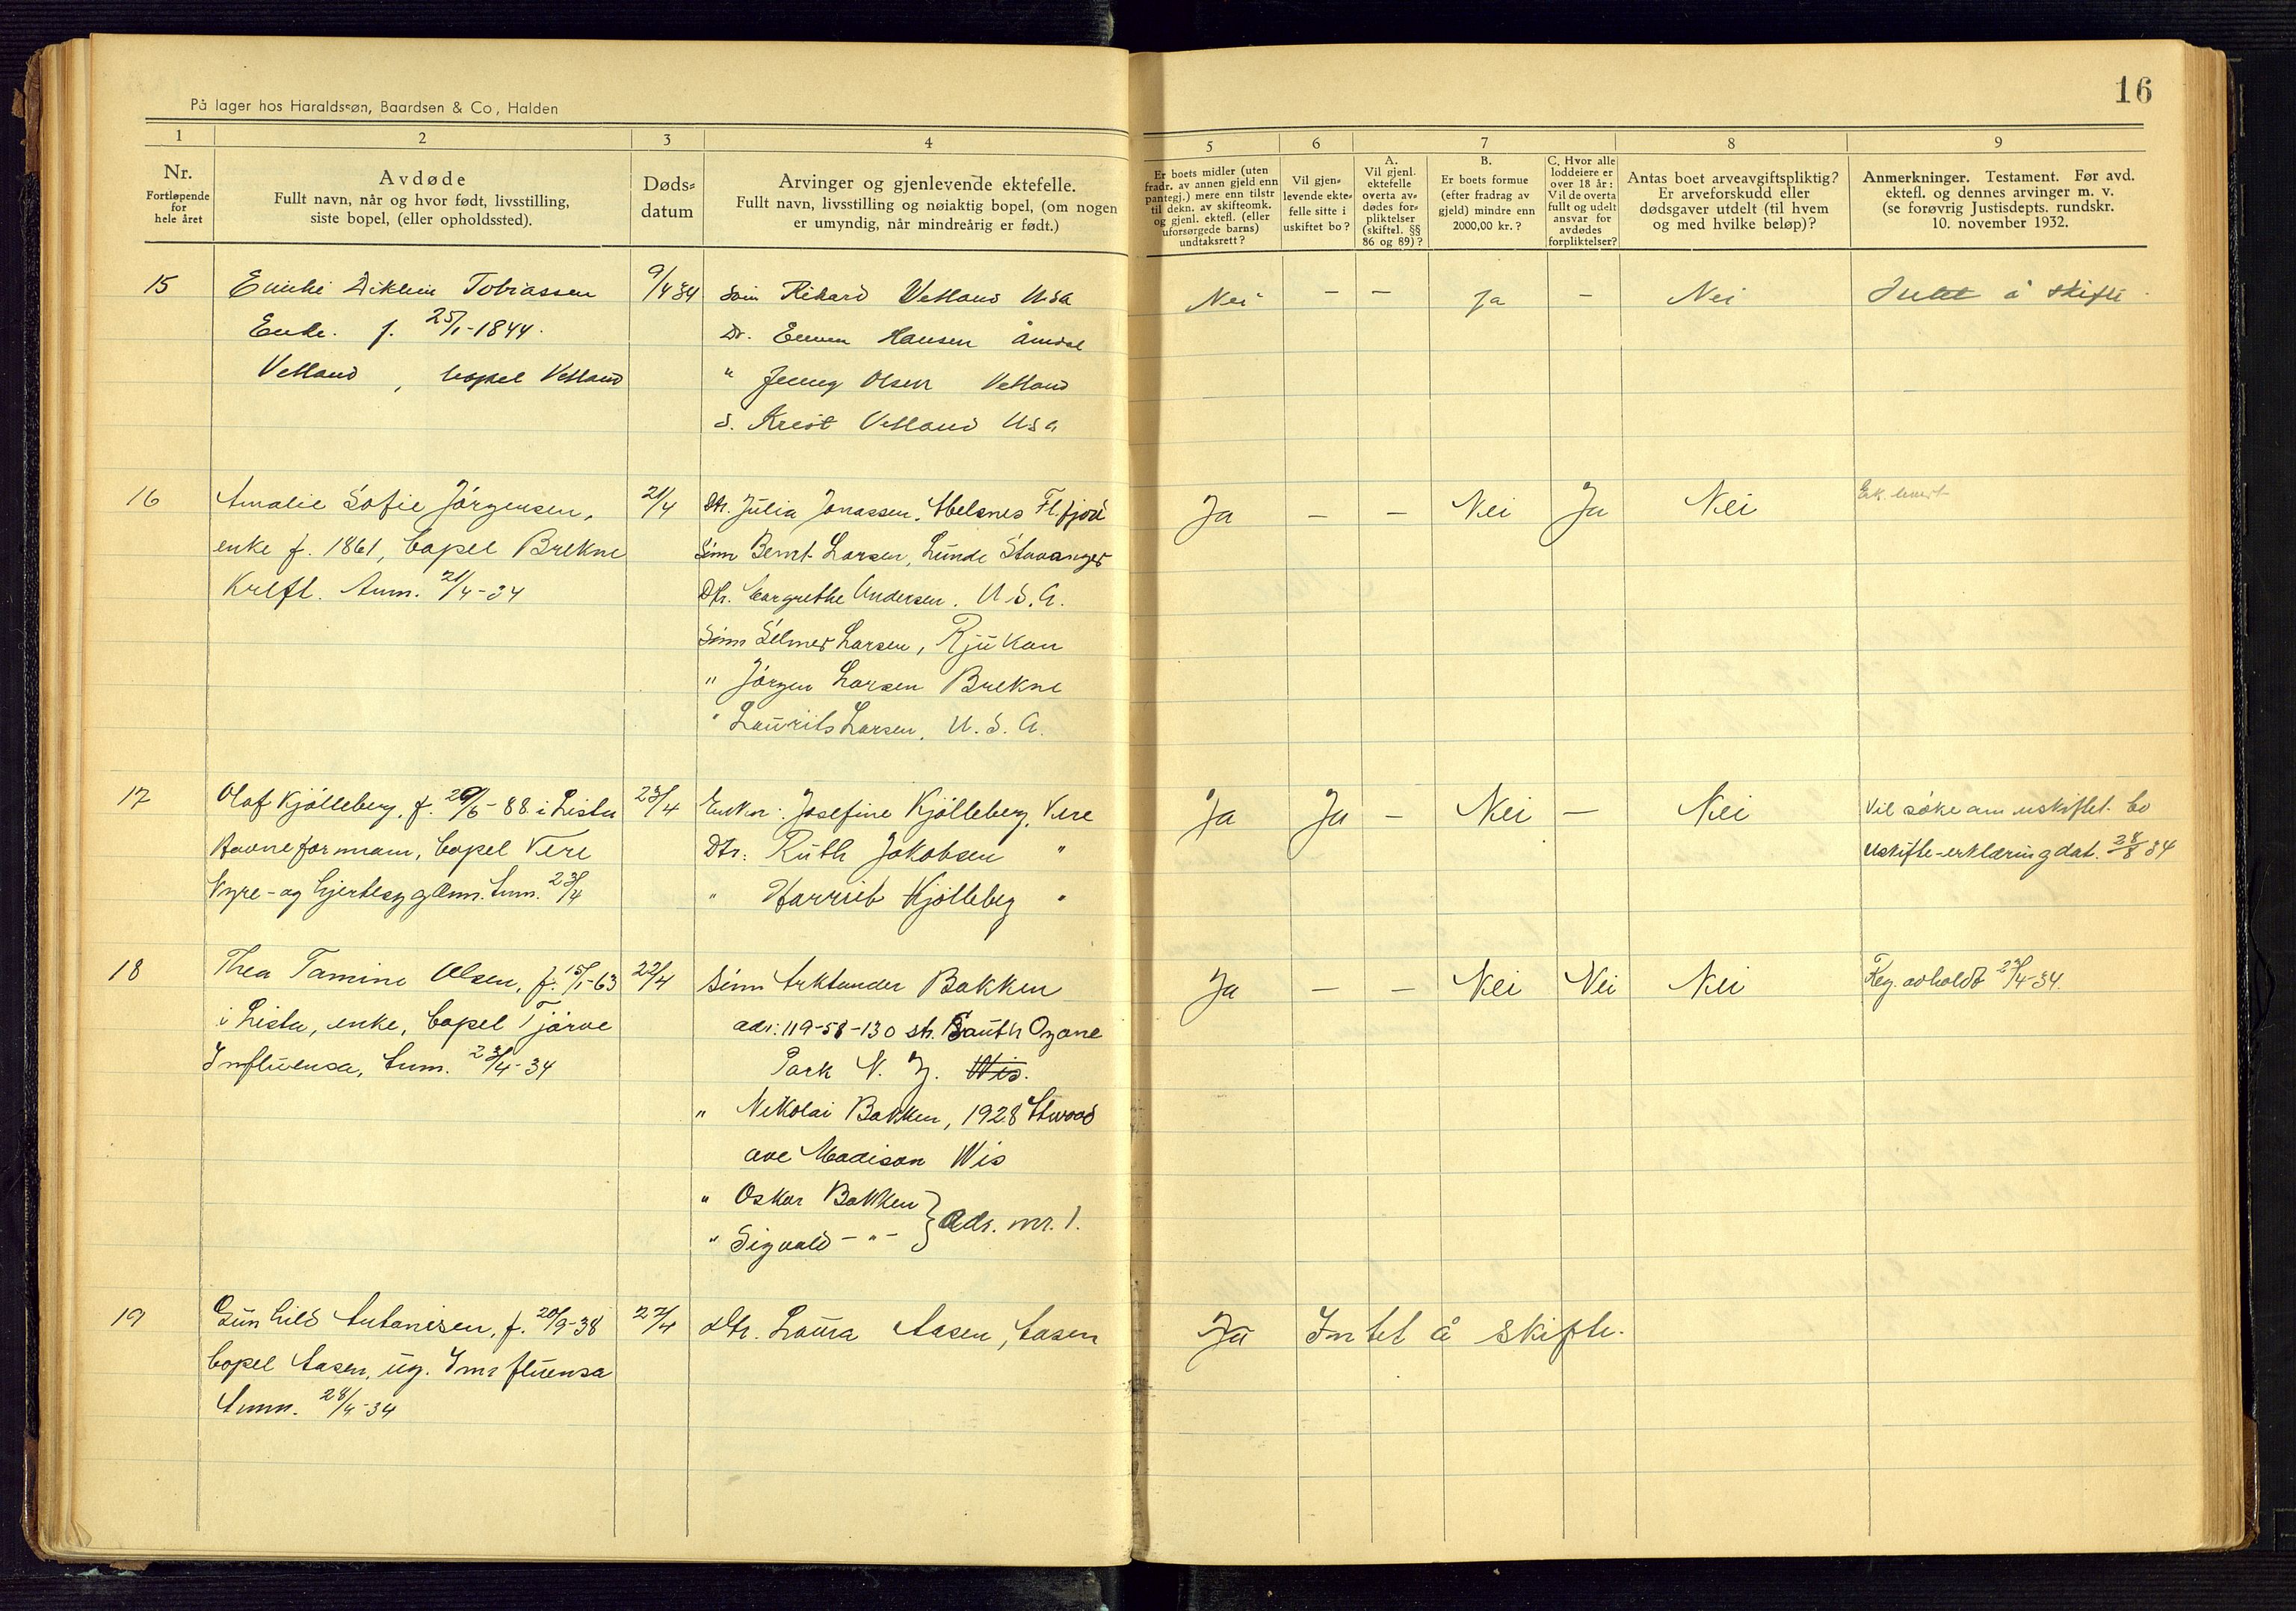 16
På lager hos Haraldssøn, Baardsen & Co, Halden
1 2 3 4 5 6 7 8 9
Nr.
Fortløpende
for
hele året
Avdøde
Fullt navn, når og hvor født, livsstilling,
siste bopel, (eller opholdssted).
Døds-
datum
Arvinger og gjenlevende ektefelle.
Fullt navn, livsstilling og nøiaktig bopel, (om nogen
er umyndig, når mindreårig er født.)
Er boets midler (uten
fradr. av annen gjeld enn
pantegj.) mere enn tilstr.
til dekn. av skifteomk.
og gjenl. ektefl. (eller
uforsørgede barns)
undtaksrett?
Vil gjen-
levende ekte-
felle sitte i
uskiftet bo?
A.
Vil gjenl.
ektefelle
overta av-
dødes for-
pliktelser
(skiftel. §§
86 og 89)?
B.
Er boets formue
(efter fradrag av
gjeld) mindre enn
2000,00 kr.?
C. Hvor alle
loddeiere er
over 18 år:
Vil de overta
fullt og udelt
ansvar for
avdødes
forpliktelser?
Antas boet arveavgiftspliktig?
Er arveforskudd eller
dødsgaver utdelt (til hvem
og med hvilke beløp)?
Anmerkninger. Testament. Før avd.
ektefl. og dennes arvinger m. v.
(se forøvrig Justisdepts. rundskr.
10. november 1932.
15 Tobiassen 9/4 34 Søn Rikard Vetland Usa Nei – – Ja – Nei Intet å skifte
Enke. f. 25/1-1844. Dr. Hansen
Vetland, bopel Vetland " Jenny Olsen Vetland
S. Krist Vetland Usa
16 Amalie Sofie Jörgensen, 21/4 Dtr. Julia Jonassen, Fl.fjord Ja – – Nei Ja Nei
enke f. 1861, bopel Brekne Sönn Bernt Larsen, Lunde Stavanger
Anm. 21/4-34 Dtr. Margrethe Andersen. U.S.A.
Sönn Selmer Larsen, Rjukan
" Jörgen Larsen Brekne
" Laurits Larsen, U.S.A.
17 Olaf Kjölleberg, f. 20/6-88 i Lista 23/4 Enken: Josefine Kjölleberg, Vere Ja Ja – Nei – Nei Vil söke om uskiftet bo
Havneformann, bopel Vere Dtr: Ruth Jakobsen " Uskifte-erklæring dat. 28/8 34
Nyre- og hjertesygdom. Anm. 23/4 " Harriet Kjölleberg "
18 Thea Tomine Olsen, f. 15/1-63 22/4 Sönn Bakken Ja – – Nei Nei Nei Reg. avholdt 25/4-34.
i Lista, enke, bopel Tjörve adr: 119-58-130 str. South Ozone
Influensa, Anm. 23/4-34 Park N. Y. Wis.
" Nikolai Bakken, 1928 Atwood
ave Madison Wis
" Oskar Bakken } Adr. nr. 1.
" Sigvald – " –
19 Gunhild Antonisen, f. 20/9-38 27/4 Dtr. Laura Aasen, Aasen Ja Intet å skifte.
bopel Aasen, ug. Influensa
Anm. 28/4-34